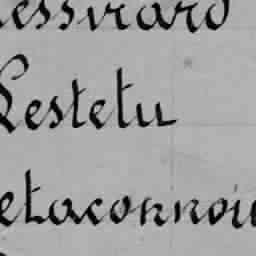 essirard
Lestetu
etaconnoi